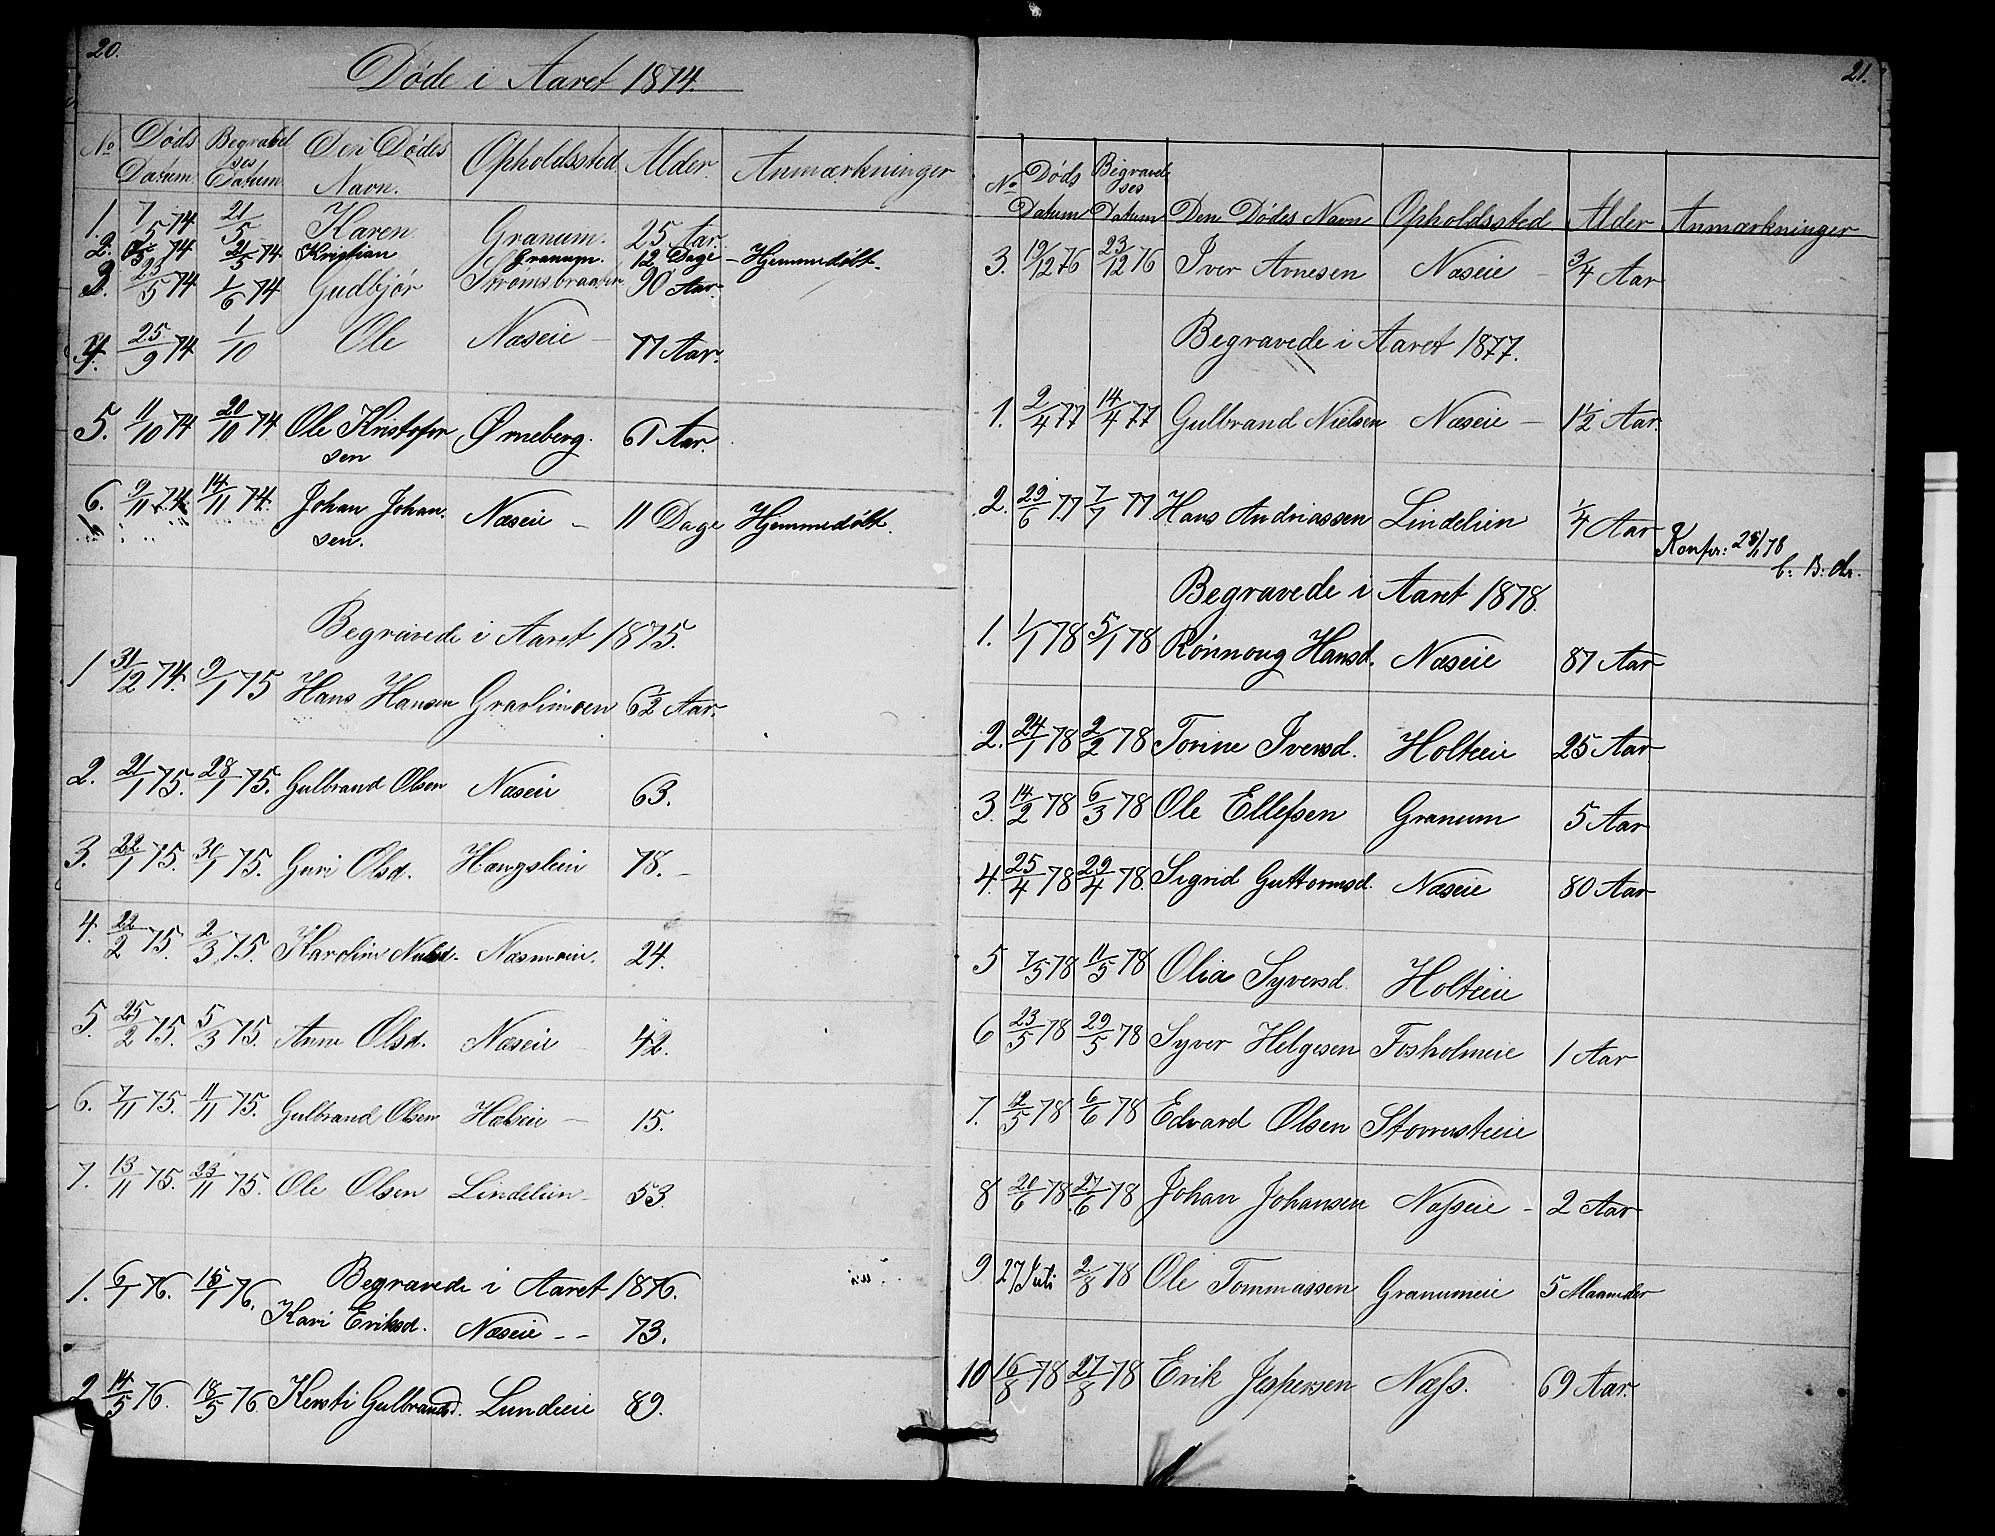 20.
Døde i Aaret 1874.
No Døds Datum Begravelses Datum Den Dødes Navn. Opholdssted Alder. Anmærkninger
1. 7/5 74 21/5 Karen Granum. 25 Aar.
2. 74 21/5 74 Kristian Granum. 12 Dage – Hjemmedøbt.
3. 23/5 74 1/6 74 Gudbjør Strømsbraaten 90 Aar.
4. 25/9 74 1/10 Ole Næseie – 77 Aar.
5. 11/10 74 20/10 74 Ole Kristofer
sen Ørneberg. 61 Aar.
6. 9/11 74 14/11 74. Johan Johan.
sen. Næseie – 11 Dage Hjemmedøbt.
Begravede i Aaret 1875.
1 31/12 74. 9/1 75 Hans Hansen Gravlimoen 6½ Aar.
2. 21/1 75. 28/1 75. Gulbrand Olsen Næseie 63.
3. 22/1 75. 30/1 75. Guri Olsd. Haugslein 78. –
4. 22/2 75. 2/3 75. Karolin Nielsd. Næsmoin. 24.
5. 25/2 75. 5/3 75. Anne Olsd. Næseie – 42.
6. 7/11 75. 11/11 75. Gulbrand Olsen – 15.
7. 13/11 75. 23/11 75. Ole Olsen Lindelien – 53.
Begravede i Aaret 1876.
1. 6/1 76. 15/1 76. Kari Eriksd. Næseie – – 73.
2 14/5 76. 18/5 76 Kersti Gulbrandsd. Lundeie 89.
21.
No Døds Datum Begravelses Datum Den Dødes Navn Opholdssted Alder Anmærkninger
3. 19/12 76 23/12 76 Iver Arnesen Næseie – 3/4 Aar
Begravede i Aaret 1877.
1. 2/4 77 14/4 77 Gulbrand Nielsen Næseie – 1½ Aar.
2. 29/6 77 7/7 77 Hans Andriassen Lindelien 1/4 Aar
Konfr: 28/1 78
Begravede i Aaret 1878.
1. 1/1 78 5/1 78 Rønnoug Hansd. Næseie 87 Aar
2. 24/1 78 2/2 78 Torine Iversd. Holteie 25 Aar
3. 14/2 78 6/3 78 Ole Ellefsen Granum 5 Aar
4. 25/4 78 29/4 78. Sigrid Guttormsd. Næseie 80 Aar
5 7/5 78 11/5 78 Olia Syversd. Holteie
6 23/5 78 29/5 78 Syver Helgesen Fosholmeie 1 Aar
7. 12/5 78 6/6 78 Edvard Olsen Storrusteie
8 20/6 78 27/6 78 Johan Johansen Næsseie – 2 Aar
9 27 Juli 2/8 78 Ole Tommassen Granumeie 5 Maaneder
10 16/8 78 27/8 78 Erik Jespersen Næss. 69 Aar.